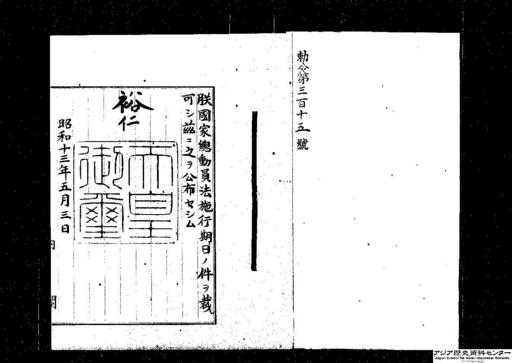 勅令第三百十五號
朕國家總動員法施行期日ノ件ヲ裁
可シ茲ニ之ヲ公布セシム
裕仁
天皇
御璽
昭和十三年五月三日
内 閣
アジア歴史資料センター
Japan Center for Asian Historical Records